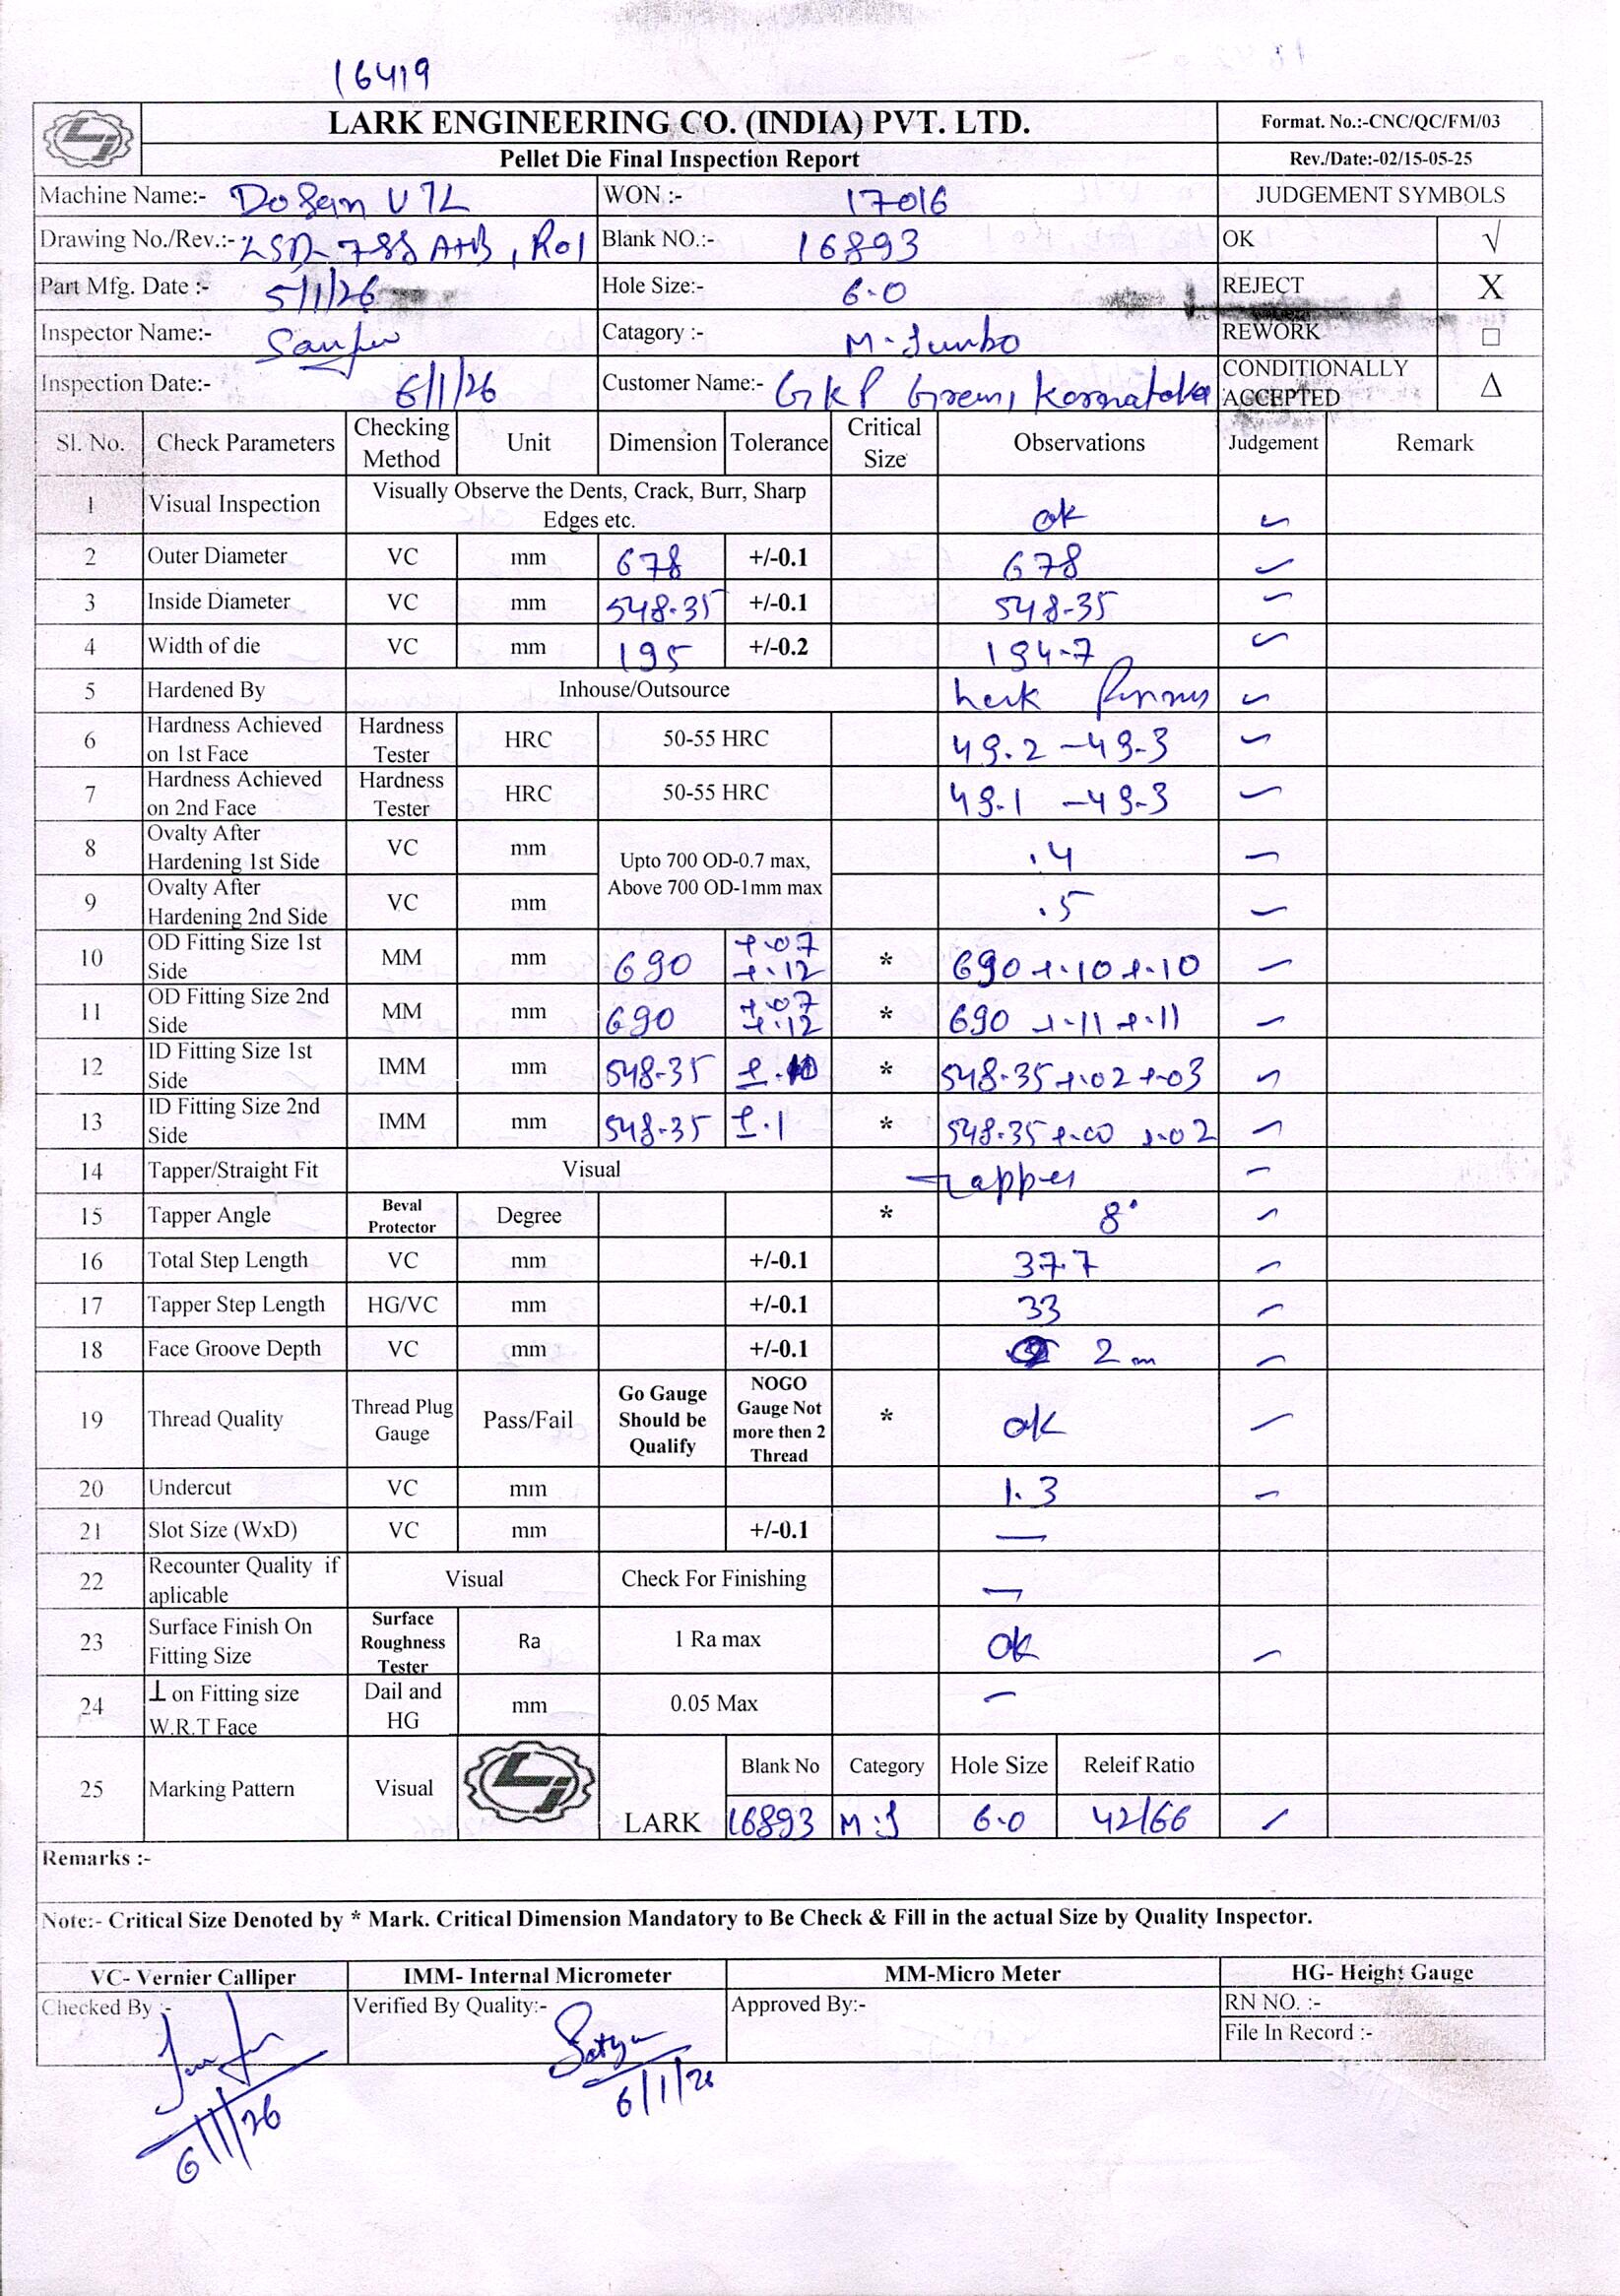 16419
LARK ENGINEERING CO. (INDIA) PVT. LTD.
Format. No.:-CNC/QC/FM/03
Pellet Die Final Inspection Report
Rev./Date:-02/15-05-25
Machine Name:- Dosan VTL
WON :- 17016
JUDGEMENT SYMBOLS
Drawing No./Rev.:- LSD-788 A+B, R01
Blank NO.:- 16893
OK √
Part Mfg. Date :- 5/1/26
Hole Size:- 6.0
REJECT X
Inspector Name:-
Catagory :- M-Jumbo
REWORK □
Inspection Date:- 6/1/26
Customer Name:- GKP Green, Karnataka
CONDITIONALLY ACCEPTED Δ
Sl. No. Check Parameters Checking Method Unit Dimension Tolerance Critical Size Observations Judgement Remark
1 Visual Inspection Visually Observe the Dents, Crack, Burr, Sharp Edges etc. ok ✓
2 Outer Diameter VC mm 678 +/-0.1 678 ✓
3 Inside Diameter VC mm 548.35 +/-0.1 548.35 ✓
4 Width of die VC mm 195 +/-0.2 194.7 ✓
5 Hardened By Inhouse/Outsource ✓
6 Hardness Achieved on 1st Face Hardness Tester HRC 50-55 HRC 49.2 -49.3 ✓
7 Hardness Achieved on 2nd Face Hardness Tester HRC 50-55 HRC 49.1 -49.3 ✓
8 Ovalty After Hardening 1st Side VC mm Upto 700 OD-0.7 max, Above 700 OD-1mm max .4 ✓
9 Ovalty After Hardening 2nd Side VC mm .5 ✓
10 OD Fitting Size 1st Side MM mm 690 +.07 +.12 * 690 +.10 +.10 ✓
11 OD Fitting Size 2nd Side MM mm 690 +.07 +.12 * 690 +.11 +.11 ✓
12 ID Fitting Size 1st Side IMM mm 548.35 ±.10 * 548.35 +.02 +.03 ✓
13 ID Fitting Size 2nd Side IMM mm 548.35 ±.1 * 548.35 +.00 +.02 ✓
14 Tapper/Straight Fit Visual Tapper ✓
15 Tapper Angle Beval Protector Degree * 8° ✓
16 Total Step Length VC mm +/-0.1 37.7 ✓
17 Tapper Step Length HG/VC mm +/-0.1 33 ✓
18 Face Groove Depth VC mm +/-0.1 2 m ✓
19 Thread Quality Thread Plug Gauge Pass/Fail Go Gauge Should be Qualify NOGO Gauge Not more then 2 Thread * ok ✓
20 Undercut VC mm 1.3 ✓
21 Slot Size (WxD) VC mm +/-0.1 —
22 Recounter Quality if aplicable Visual Check For Finishing —
23 Surface Finish On Fitting Size Surface Roughness Tester Ra 1 Ra max ok ✓
24 ⊥ on Fitting size W.R.T Face Dail and HG mm 0.05 Max —
25 Marking Pattern Visual LARK Blank No Category Hole Size Releif Ratio
16893 M.J 6.0 42/66 ✓
Remarks :-
Note:- Critical Size Denoted by * Mark. Critical Dimension Mandatory to Be Check & Fill in the actual Size by Quality Inspector.
VC- Vernier Calliper IMM- Internal Micrometer MM-Micro Meter HG- Height Gauge
Checked By :- Verified By Quality:- Satya Approved By:- RN NO. :-
File In Record :-
6/1/26
6/1/26